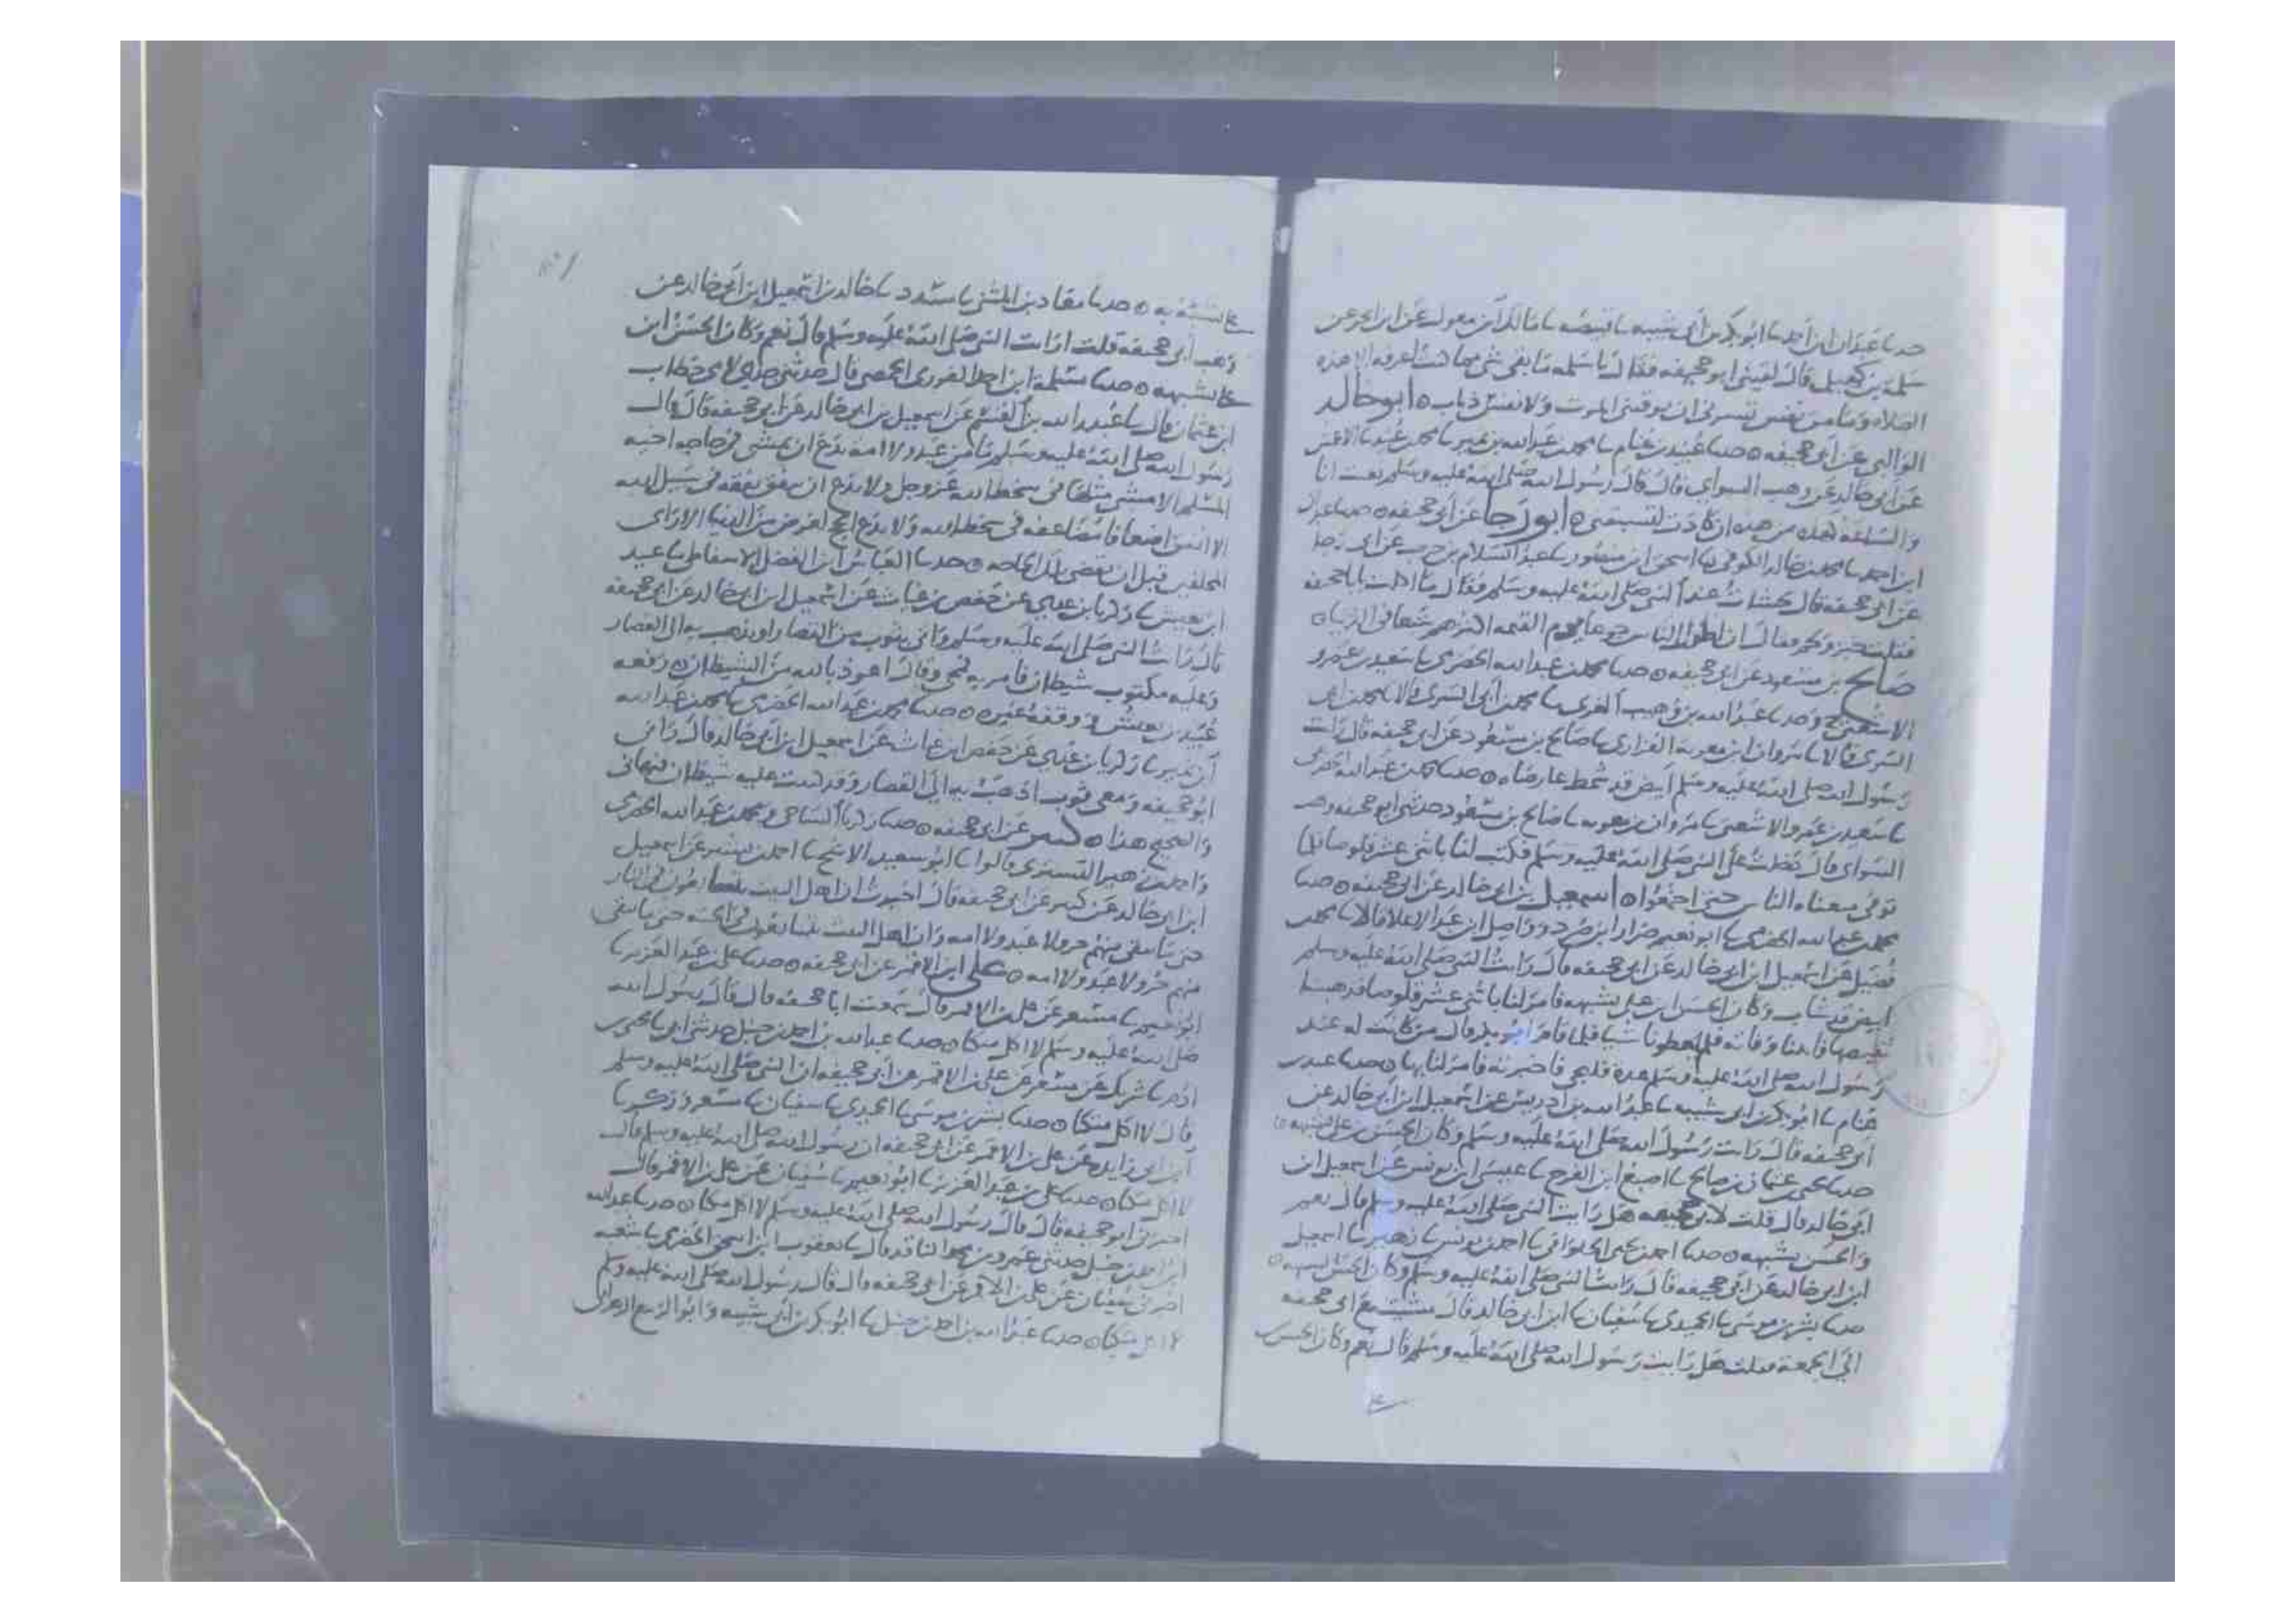 حدثنا عبدان ابن احمد نا ابو بكر بن ابي شيبه نا قبيصه نا مالك بن مغول عن ابن ابجر عن
سلمه بن كهيل قال لقيني ابو جحيفه فقال يا سلمه ما بقي شي مما كنت اعرفه الا هذه
الصلاه وما من نفس تسرني ان يوقيني الموت ولا نفس ذباب ه ابو خالد
الوالبي عن ابي جحيفه ه حدثنا عبيد بن غنام نا محمد بن عبد الله بن نمير نا محمد بن عبيد نا الاعمش
عن ابي خالد عن وهب السواي قال قال رسول الله صلى الله عليه وسلم بعثت انا
والساعه كهذه من هذه ان كادت لتسبقني ه ابو رجا عن ابي جحيفه ه حدثنا عبدان
ابن احمد نا محمد بن خالد الكوفي نا اسحق ابن منصور نا عبد السلام بن حرب عن ابي رجا
عن ابي جحيفه قال تجشات عند النبي صلى الله عليه وسلم فقال ما اكلت يا ابا جحيفه
فقلت خبز ولحم فقال ان اطول الناس جوعا يوم القيمه اكثرهم شبعا في الدنيا ه
صالح بن مسعود عن ابي جحيفه ه حدثنا محمد بن عبد الله الحضرمي نا سعيد بن عمرو
الاشعثي ح وحدثنا عبد الله بن وهيب الغزي نا محمد بن ابي السري قالا نا محمد بن ابي
السري قالا نا مروان ابن معويه الفزاري نا صالح بن مسعود عن ابي جحيفه قال رايت
رسول الله صلى الله عليه وسلم ابيض قد شمط عارضاه ه حدثنا محمد بن عبد الله الحضرمي
نا سعيد بن عمرو الاشعثي نا مروان بن معويه نا صالح بن مسعود حدثني ابو جحيفه وهب
السواي قال دخلت على النبي صلى الله عليه وسلم فكتب لنا باثني عشر قلوصا فلما
توفي منعناه الناس حتى اجتمعوا ه اسمعيل بن ابي خالد عن ابي جحيفه ه حدثنا
محمد بن عبد الله الحضرمي نا ابو نعيم ضرار ابن صرد وواصل ابن عبد الاعلا قالا نا محمد بن
فضيل عن اسمعيل ابن ابي خالد عن ابي جحيفه قال رايت النبي صلى الله عليه وسلم
ابيض قد شاب وكان الحسن ابن علي يشبهه فامر لنا باثني عشر قلوصا فذهبنا
نقبضها فاتتنا وفاته فلم يعطونا شيا فلما قام ابو بكر قال من كانت له عند
رسول الله صلى الله عليه وسلم عده فليجي فاخبرته فامر لنا بها ه حدثنا عبيد بن
غنام نا ابو بكر بن ابي شيبه نا عبد الله بن ادريس عن اسمعيل ابن ابي خالد عن
ابي جحيفه قال رايت رسول الله صلى الله عليه وسلم وكان الحسن بن علي يشبهه ه
حدثنا يحيى بن عثمان بن صالح نا اصبغ ابن الفرج نا عيسى ابن يونس عن اسمعيل ابن
ابي خالد قال قلت لابي جحيفه هل رايت النبي صلى الله عليه وسلم قال نعم
والحسن يشبهه ه حدثنا احمد بن يحيى الحلواني نا احمد بن يونس نا زهير نا اسمعيل
ابن ابي خالد عن ابي جحيفه قال رايت النبي صلى الله عليه وسلم وكان الحسن يشبهه ه
حدثنا بشر بن موسى نا الحميدي نا سفيان نا ابن ابي خالد قال مشيت مع ابي جحيفه
الى الجمعه فقلت هل رايت رسول الله صلى الله عليه وسلم قال نعم وكان الحسن بن
علي يشبه به ه حدثنا معاذ بن المثنى نا مسدد نا خالد نا اسمعيل ابن ابي خالد عن
وهب ابي جحيفه قلت ارايت النبي صلى الله عليه وسلم قال نعم وكان الحسن ابن
علي يشبهه ه حدثنا سلمة ابن احمد الفوزي الحمصي قال حدثني جدي لامي خطاب
ابن عثمان قال نا عبد الله بن القسم عن اسمعيل بن ابي خالد عن ابي جحيفه قال قال
رسول الله صلى الله عليه وسلم ما من عبد ولا امه يدع ان يمشي في حاجه اخيه
المسلم الا مشي مثلها في سخط الله عز وجل ولا يدع ان ينفق نفقه في سبيل الله
الا انفق اضعافا مضاعفه في سخط الله ولا يدع الحج لغرض من الدنيا الا راى
المحلقين قبل ان تقضى تلك الحاجه ه حدثنا العباس ابن الفضل الاسفاطي نا عبيد
ابن يعيش نا زكريا بن عدي عن حفص بن غياث عن اسمعيل ابن ابي خالد عن ابي جحيفه
قال رايت النبي صلى الله عليه وسلم واتي بثوب من القصار او يذهب به الى القصار
وعليه مكتوب شيطان فامر به فمحي وقال اعوذ بالله من الشيطان ه رفعه
عبيد بن يعيش ووقفه غيره ه حدثنا محمد بن عبد الله الحضرمي نا محمد بن عبد الله
ابن نمير نا زكريا بن عدي عن حفص ابن غياث عن اسمعيل ابن ابي خالد قال راني
ابو جحيفه ومعي ثوب اذهب به الى القصار وقد كتبت عليه شيطان فنهاني
والصحيح هذا ه كثير عن ابي جحيفه ه حدثنا زكريا الساجي ومحمد بن عبد الله الحضرمي
واحمد بن زهير التستري قالوا نا ابو سعيد الاشج نا احمد بن بشير عن اسمعيل
ابن ابي خالد عن كثير عن ابي جحيفه قال اخبرت ان اهل البيت يتتابعون في النار
حتى ما يبقى منهم حر ولا عبد ولا امه وان اهل البيت يتتابعون في الجنه حتى ما يبقى
منهم حر ولا عبد ولا امه ه علي ابن الاقمر عن ابي جحيفه ه حدثنا علي بن عبد العزيز نا
ابو نعيم نا مسعر عن علي بن الاقمر قال سمعت ابا جحيفه قال قال رسول الله
صلى الله عليه وسلم لا اكل متكا ه حدثنا عبد الله بن احمد بن حنبل حدثني ابي نا يحيى بن
ادم نا شريك عن مسعر عن علي بن الاقمر عن ابي جحيفه ان النبي صلى الله عليه وسلم
قال لا اكل متكا ه حدثنا بشر بن موسى نا الحميدي نا سفيان نا مسعر وزكريا
ابن ابي زايده عن علي بن الاقمر عن ابي جحيفه ان رسول الله صلى الله عليه وسلم قال
لا اكل متكا ه حدثنا علي بن عبد العزيز نا ابو نعيم نا سفيان عن علي بن الاقمر قال
اخبرني ابو جحيفه قال قال رسول الله صلى الله عليه وسلم لا اكل متكا ه حدثنا عبد الله
ابن احمد بن حنبل حدثني عمرو بن محمد الناقد قال نا يعقوب ابن اسحق الحضرمي نا شعبه
اخبرني سفيان عن علي بن الاقمر عن ابي جحيفه قال قال رسول الله صلى الله عليه وسلم
لا اكل متكا ه حدثنا عبد الله بن احمد بن حنبل نا ابو بكر بن ابي شيبه وابو الربيع الزهراني